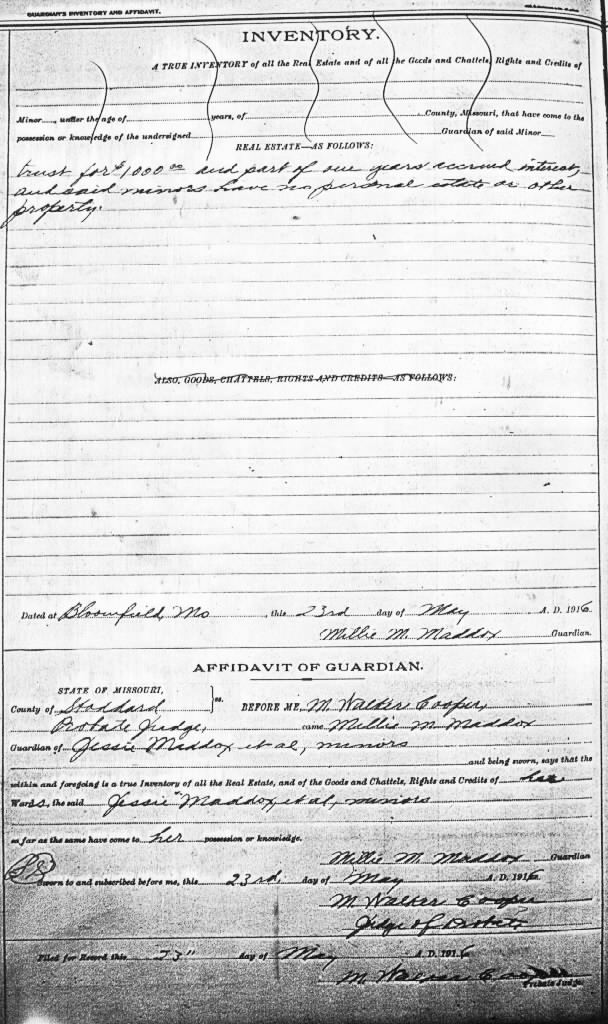 GUARDIAN'S INVENTORY AND AFFIDAVIT.
INVENTORY.
A TRUE INVENTORY of all the Real Estate and of all the Goods and Chattels, Rights and Credits of
Minor....., under the age of ..... years, of ..... County, Missouri, that have come to the
possession or knowledge of the undersigned ..... Guardian of said Minor
REAL ESTATE—AS FOLLOWS:
trust for $1000.00 and part of one years accrued interest,
and said minors have no personal estate or other
property.
ALSO, GOODS, CHATTELS, RIGHTS AND CREDITS—AS FOLLOWS:
Dated at Bloomfield, Mo , this 23rd day of May A. D. 1916.
Millie M. Maddox Guardian.
AFFIDAVIT OF GUARDIAN.
STATE OF MISSOURI, } ss.
County of Stoddard BEFORE ME, M. Walker Cooper,
Probate Judge, came Millie M. Maddox
Guardian of Jessie Maddox et al, minors
and being sworn, says that the
within and foregoing is a true Inventory of all the Real Estate, and of the Goods and Chattels, Rights and Credits of her
Wards, the said Jessie Maddox, et al, minors
so far as the same have come to her possession or knowledge.
Millie M. Maddox Guardian
Sworn to and subscribed before me, this 23rd, day of May A. D. 1916
M. Walker Cooper
Judge of Probate
Filed for Record this 23" day of May A. D. 1916
M. Walker Cooper
Probate Judge.